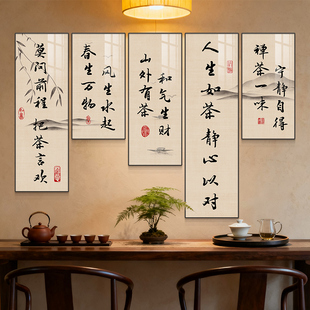 莫问前程
把茶言欢
春生万物
风生水起
山外有茶
和气生财
人生如茶静心以对
禅茶一味
宁静自得